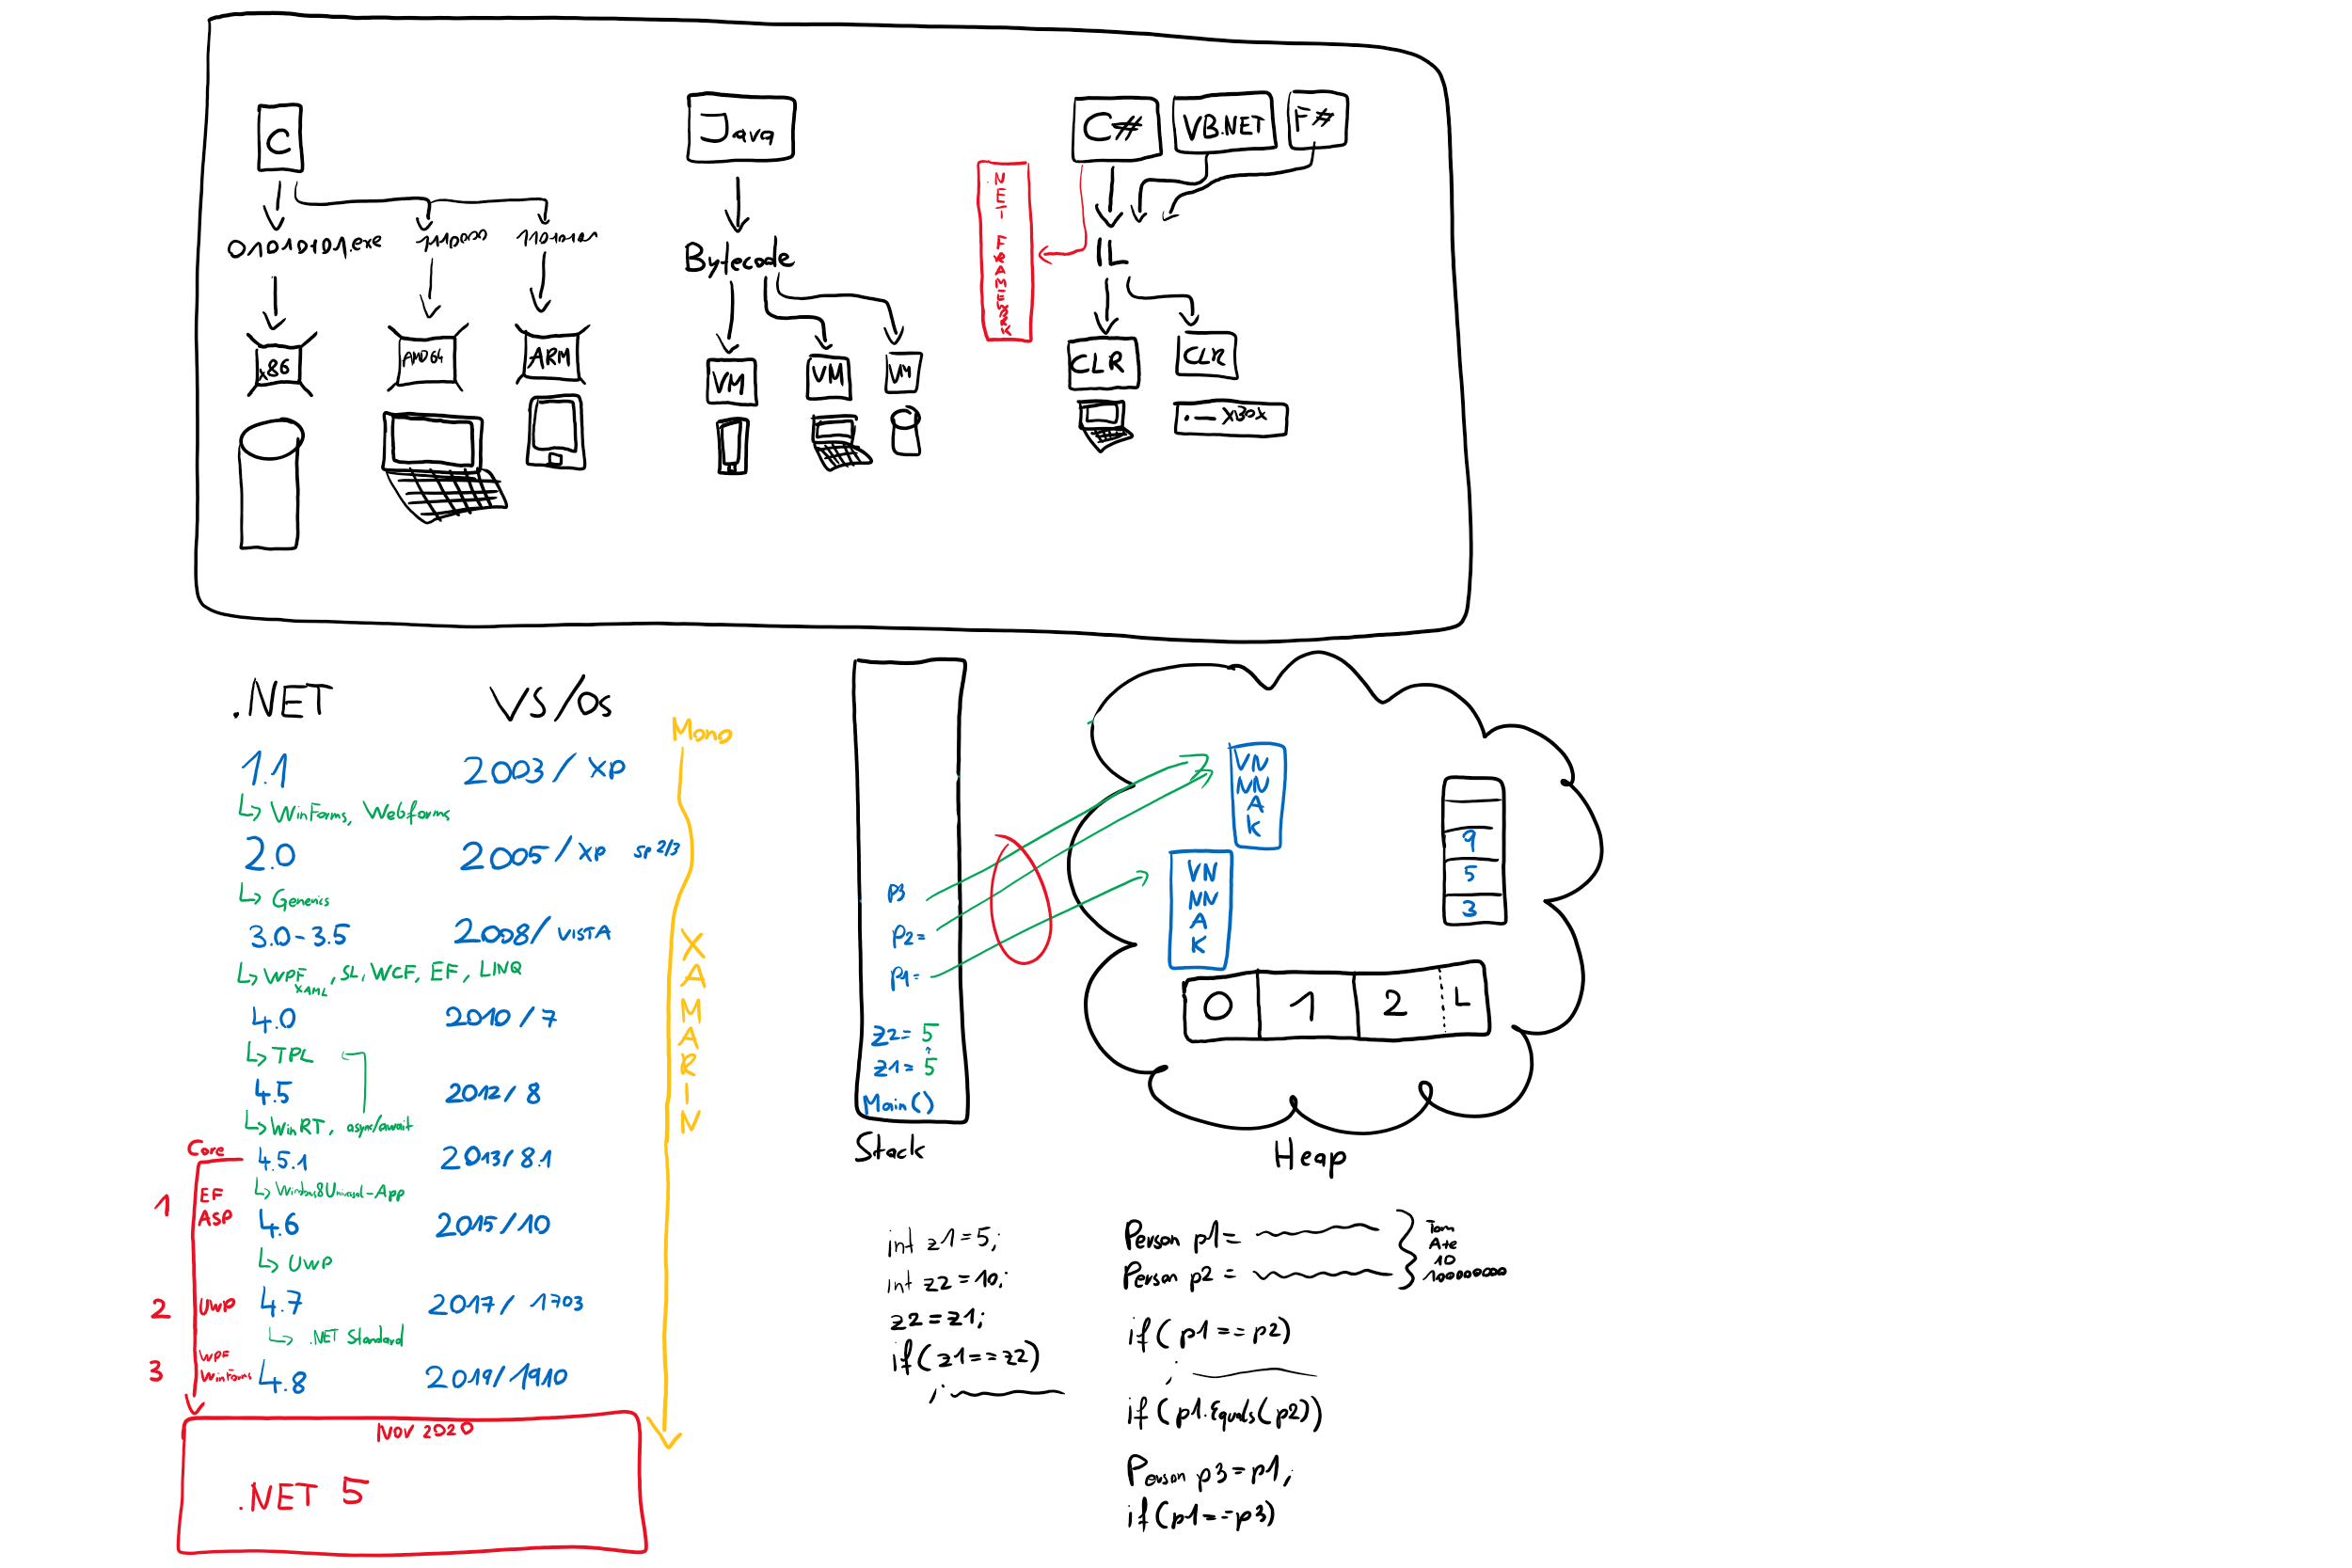 C
01010101.exe
x86
AMD64
ARM
Java
Bytecode
VM
VM
VM
C#
VB.NET
F#
.NET FRAMEWORK
IL
CLR
CLR
XBOX
.NET VS/Os
1.1 2003/XP
WinForms, Webforms
2.0 2005/XP SP2/3
Generics
3.0-3.5 2008/VISTA
WPF, SL, WCF, EF, LINQ
XAML
4.0 2010/7
TPL
4.5 2012/8
WinRT, async/await
Core
4.5.1 2013/8.1
1 EF
ASP
4.6 2015/10
UWP
2 UWP 4.7 2017/1703
.NET Standard
3 WPF
WinForms 4.8 2019/1910
Nov 2020
.NET 5
Mono
XAMARIN
p3
p2=
p1=
z2=5
z1=5
Main()
Stack
VN
NN
A
K
VN
NN
A
K
9
5
3
0 1 2 L
Heap
int z1=5;
int z2=10;
z2=z1;
if(z1==z2)
;
Person p1=
Person p2=
Tom
Ate
10
if(p1==p2)
;
if(p1.Equals(p2))
Person p3=p1;
if(p1==p3)